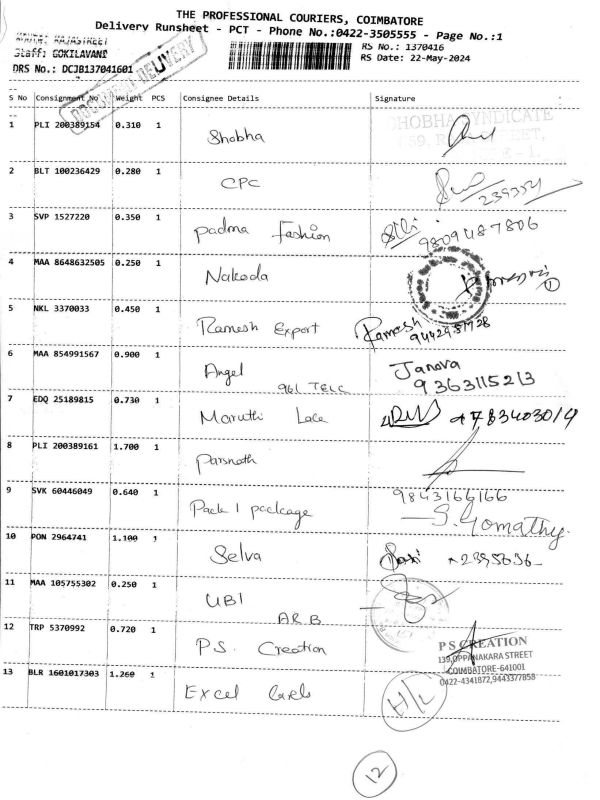 THE PROFESSIONAL COURIERS, COIMBATORE
Delivery Runsheet - PCT - Phone No.:0422-3505555 - Page No.:1
Route: RAJASTREET
Staff: GOKILAVANI
DRS No.: DCJB137041601
RS No.: 1370416
RS Date: 22-May-2024
DOCUMENT DELIVERY
S No Consignment No Weight PCS Consignee Details Signature
1 PLI 200389154 0.310 1 Shobha SHOBHA SYNDICATE
2 BLT 100236429 0.280 1 CPC 239354
3 SVP 1527220 0.350 1 Padma Fashion 9809487806
4 MAA 8648632505 0.250 1 Nakoda
5 NKL 3370033 0.450 1 Ramesh Export Ramesh
6 MAA 854991567 0.900 1 Angel Janova
961 TELC 9363115213
7 EDQ 25189815 0.730 1 Maruthi Lace
8 PLI 200389161 1.700 1 Parsnath
9 SVK 60446049 0.640 1 Pack 1 package 9843166166
S. Gomathy.
10 PON 2964741 1.100 1 Selva
11 MAA 105755302 0.250 1 UBI
ARB
12 TRP 5370992 0.720 1 P.S. Creation P S CREATION
139,OPPANAKARA STREET
COIMBATORE-641001
0422-4341872,9443377858
13 BLR 1601017303 1.260 1 Excel H/L
12